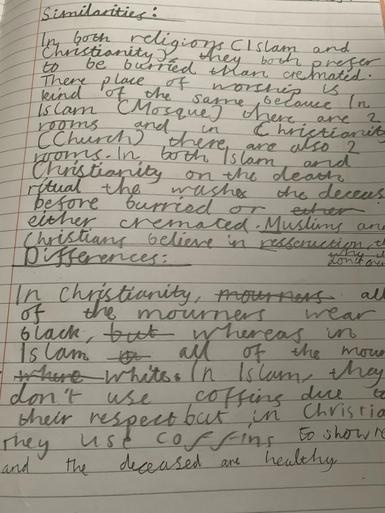 Similarities:
In both religions (Islam and
Christianity) they both prefer
to be burried than cremated.
There place of worship is
kind of the same because In
Islam (Mosque) there are 2
rooms and in Christianit
(Church) there are also 2
rooms. In both Islam and
Christianity on the death
ritual the washes the deceas
before burried or either
either cremated. Muslims an
Christians believe in resseruction, t
Differences:
In Christianity, mourners all
of the mourners wear
black, but whereas in
Islam all of the mour
where white. In Islam, they
don't use coffins due t
their respect but in Christia
They use coffins to show re
and the deceased are healthy